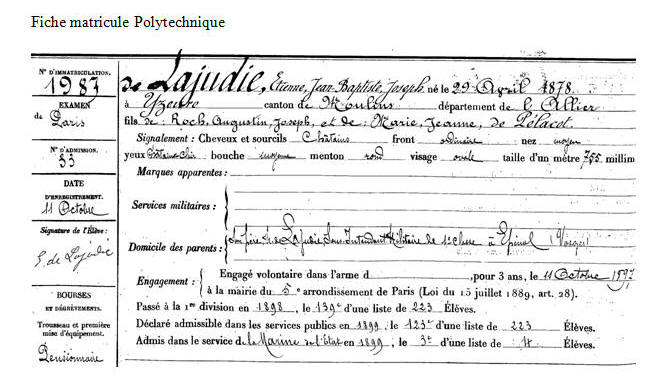 Fiche matricule Polytechnique
N° D'IMMATRICULATION.
1987
EXAMEN
de Paris
N° D'ADMISSION.
33
DATE
D'ENREGISTREMENT.
11 Octobre
Signature de l'Élève :
E. de Lajudie
BOURSES
ET DÉGRÈVEMENTS.
Trousseau et première
mise d'équipement.
Pensionnaire
de Lajudie, Etienne, Jean-Baptiste, Joseph, né le 29 Avril 1878.
à Yzeure canton de Moulins département de l'Allier
fils de : Roch, Augustin, Joseph, et de : Marie, Jeanne, de Pélacot.
Signalement : Cheveux et sourcils Châtains front ordinaire nez moyen
yeux châtain-clair bouche moyenne menton rond visage ovale taille d'un mètre 755 millim
Marques apparentes :
Services militaires :
Domicile des parents : Son père, de Lajudie, Sous-Intendant Militaire de 1re classe à Epinal (Vosges)
Engagement : Engagé volontaire dans l'arme d , pour 3 ans, le 11 Octobre 1897
à la mairie du 5e arrondissement de Paris (Loi du 15 juillet 1889, art. 28).
Passé à la 1re division en 1898, le 139e d'une liste de 223 Élèves.
Déclaré admissible dans les services publics en 1899, le 123e d'une liste de 223 Élèves.
Admis dans le service de la Marine de l'Etat en 1899, le 3e d'une liste de 4 Élèves.